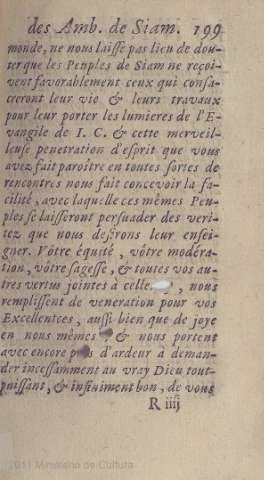 des Amb. de Siam. 199
monde, ne nous laisse pas lieu de dou-
ter que les Peuples de Siam ne reçoi-
vent favorablement ceux qui consa-
creront leur vie & leurs travaux
pour leur porter les lumieres de l'E-
vangile de I. C. & cette merveil-
leuse penetration d'esprit que vous
avez fait paroître en toutes sortes de
rencontres nous fait concevoir la fa-
cilité, avec laquelle ces mêmes Peu-
ples se laisseront persuader des veri-
tez que nous desirons leur ensei-
gner. Vôtre équité, vôtre modéra-
tion, vôtre sagesse, & toutes vos au-
tres vertus jointes à celle , nous
remplissent de veneration pour vos
Excellentces, aussi bien que de joye
en nous mêmes & nous portent
avec encore plus d'ardeur à deman-
der incessamment au vray Dieu tout-
puissant, & infiniment bon, de vous
R iiij
2011 Ministerio de Cultura